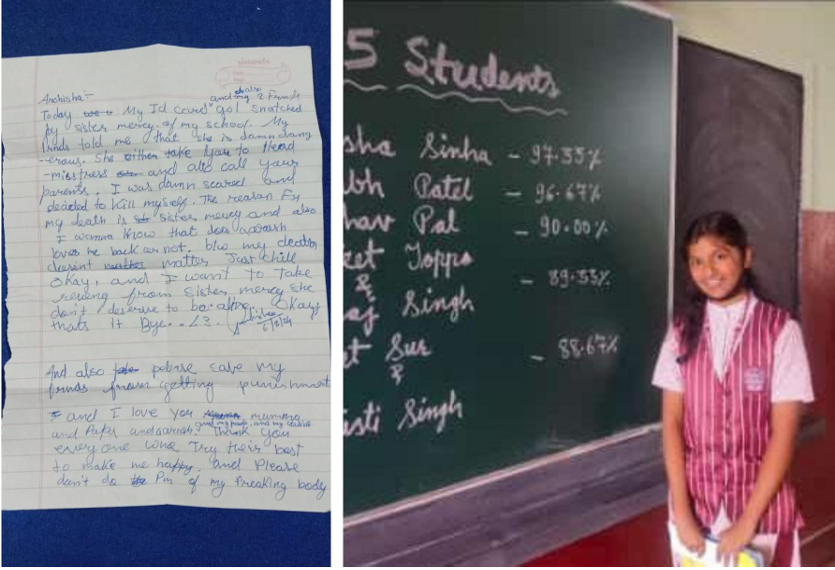 Archisha:-
and my also 2 Friends
Today My Id card got snatched
by sister mercy of my school. My
frinds told me that she is damn dang
-erous. She either take you to Head
-misstress and also call your
parents. I was damn scared and
decided to kill myself. The reason For
my death is sister mercy and also
I wanna know that does
loves me back or not. btw my death
doesent matter Just chill
okay, and I want to take
reveng from Sister mercy she
don't deserve to be alive. Okay
thats it Bye.. <3.
6/2/24
And also please save my
frinds from getting punishment
and I love you mumma
and Papa and
Thank you
everyone who Try their best
to make me happy. and Please
don't do Pm of my Freaking body
5 Students
sha Sinha - 97.33%
bh Patel - 96.67%
hav Pal - 90.00%
ket Toppo
& - 89.33%
aj Singh
et Sur
& - 88.67%
isti Singh